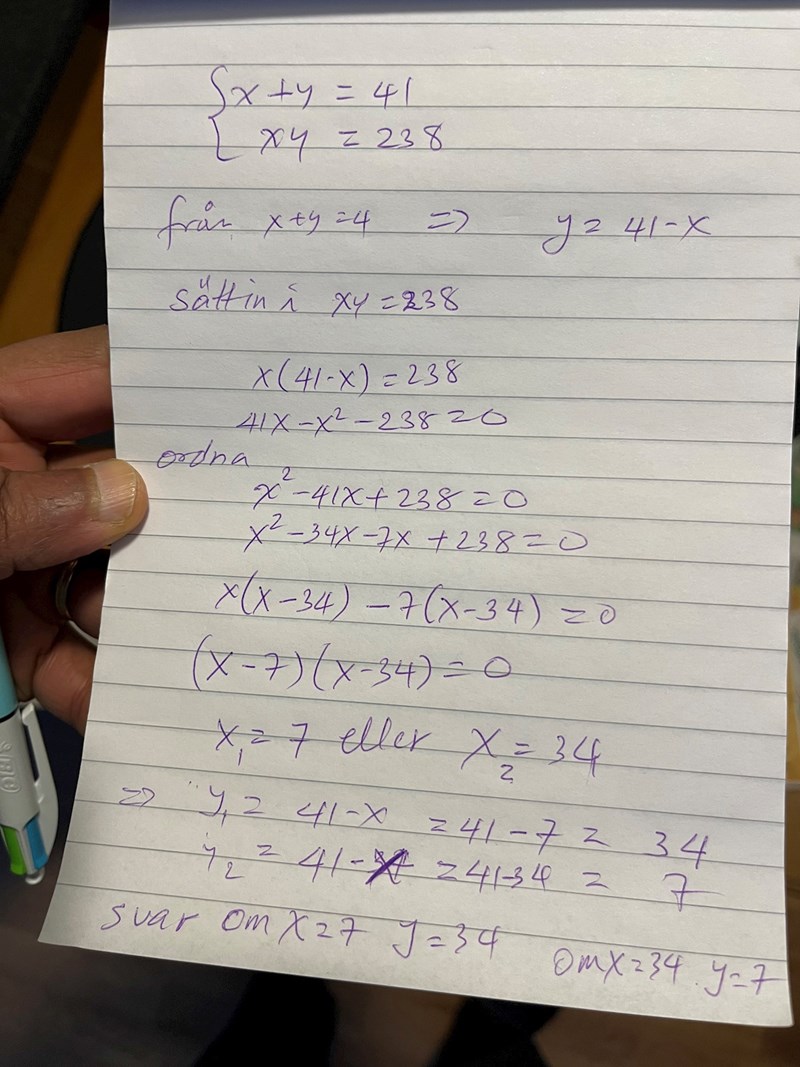 x + y = 41
xy = 238
från x+y=4 => y = 41-x
sätt in i xy = 238
x(41-x) = 238
41x-x² - 238 = 0
ordna
x² - 41x + 238 = 0
x² - 34x - 7x + 238 = 0
x(x-34) - 7(x-34) = 0
(x-7)(x-34) = 0
x₁ = 7 eller x₂ = 34
=> y₁ = 41-x = 41-7 = 34
y₂ = 41- = 41-34 = 7
svar om x=7 y=34 om x=34. y=7